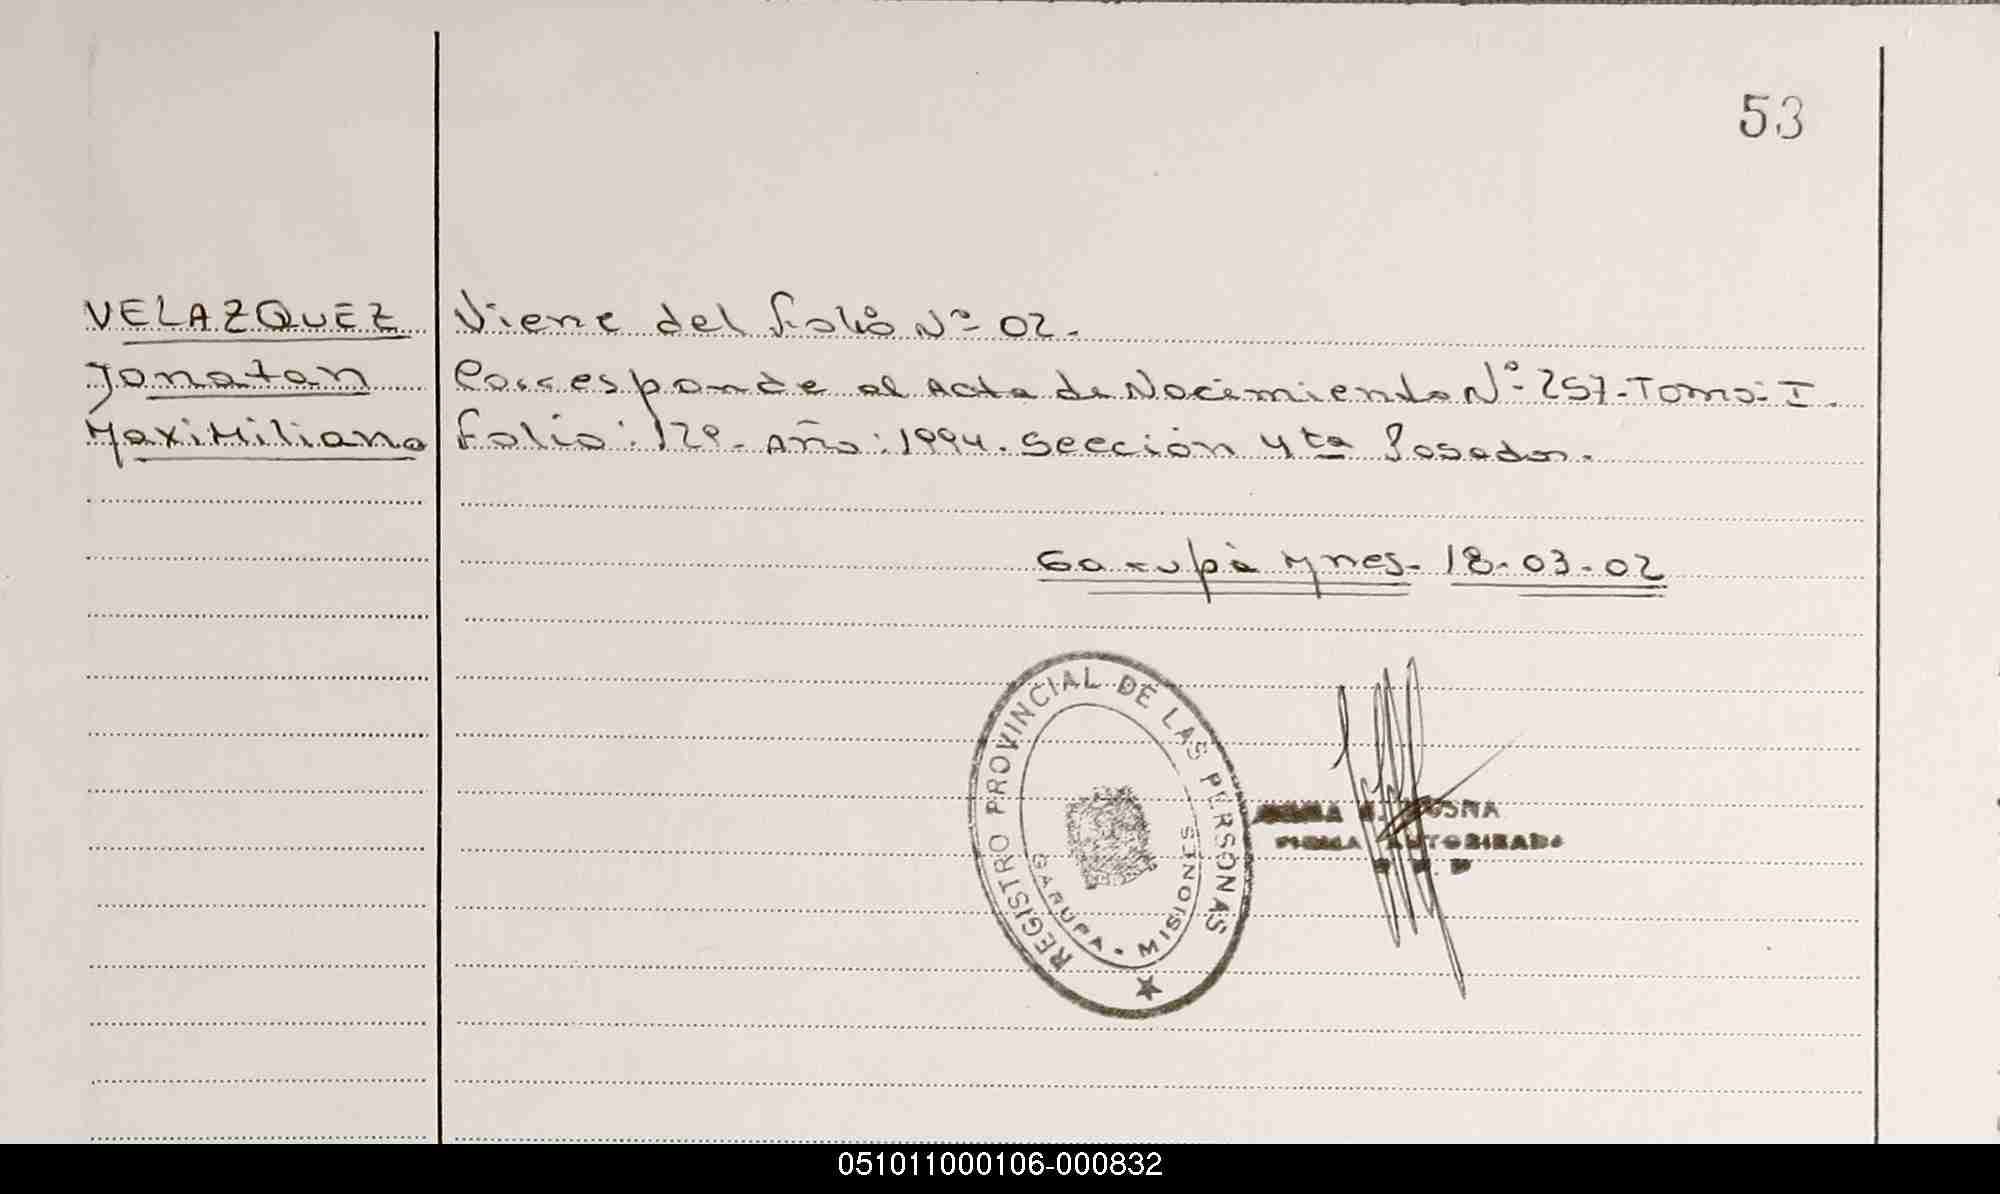 53
VELAZQUEZ
Jonatan
Maximiliano
Viene del folio Nº 02.
Corresponde al Acta de Nacimiento Nº 257-Tomo-I.
Folio: 129-Año: 1994. Sección 4ta Posadas.
Garupá Mnes. 18-03-02
REGISTRO PROVINCIAL DE LAS PERSONAS
GARUPA - MISIONES
FIRMA AUTORIZADA
051011000106-000832